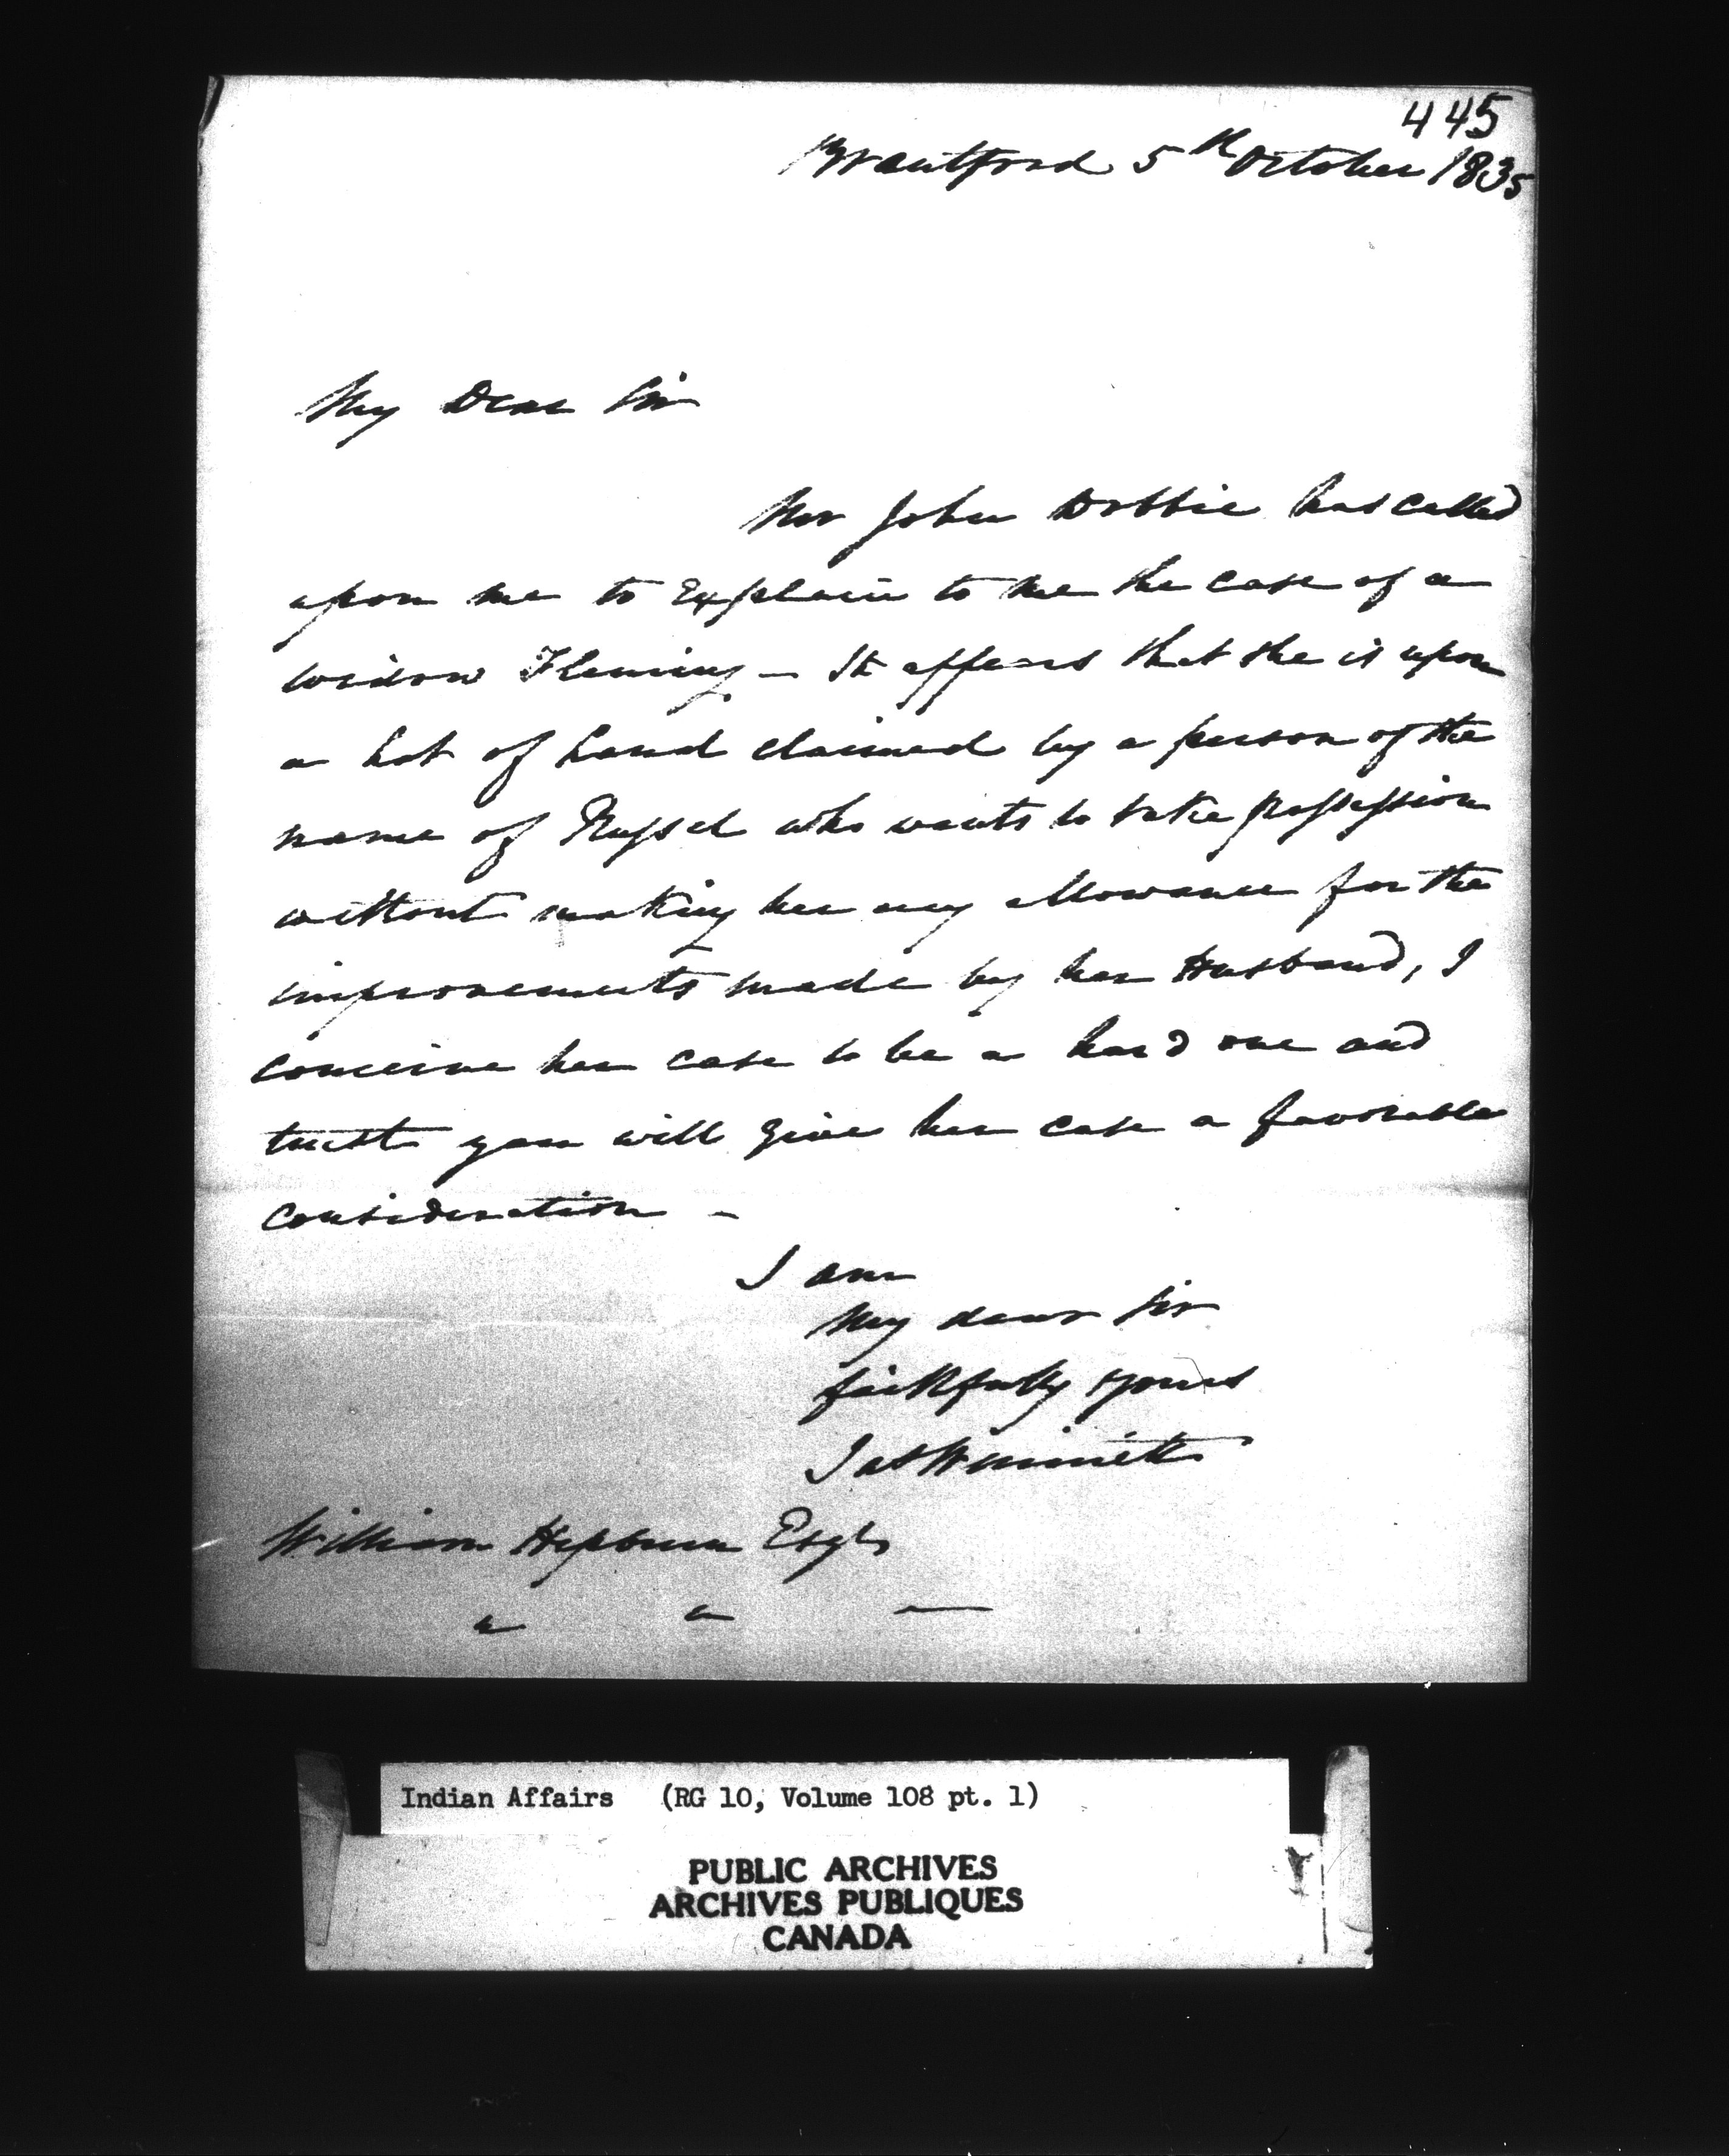 445
Brantford 5th October 1835
My Dear Sir
Mr John Dobbie has called
upon me to Explain to me the case of a
widow Fleming - It appears that she is upon
a Lot of Land claimed by a person of the
name of Russel who wants to take possession
without making her any allowance for the
improvements made by her Husband, I
conceive her case to be a hard one and
trust you will give her case a favorable
consideration -
I am
My dear Sir
faithfully yours
Jas Winniett
William Hepburn Esqr
Indian Affairs (RG 10, Volume 108 pt. 1)
PUBLIC ARCHIVES
ARCHIVES PUBLIQUES
CANADA